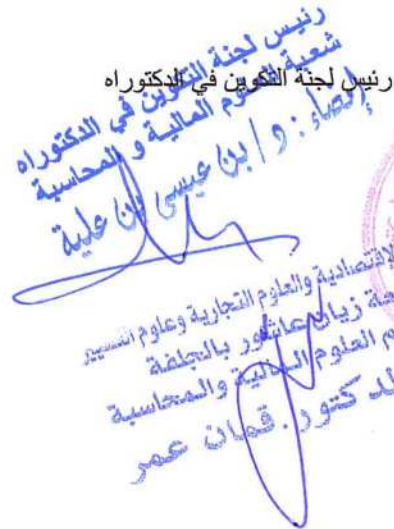 رئيس لجنة التكوين في الدكتوراه
رئيس لجنة التكوين في الدكتوراه
شعبة العلوم المالية و المحاسبة
إمضاء : د / بن عيسى بن علية
الاقتصادية والعلوم التجارية وعلوم التسيير
زيان عاشور بالجلفة
العلوم المالية والمحاسبة
الدكتور . قمان عمر